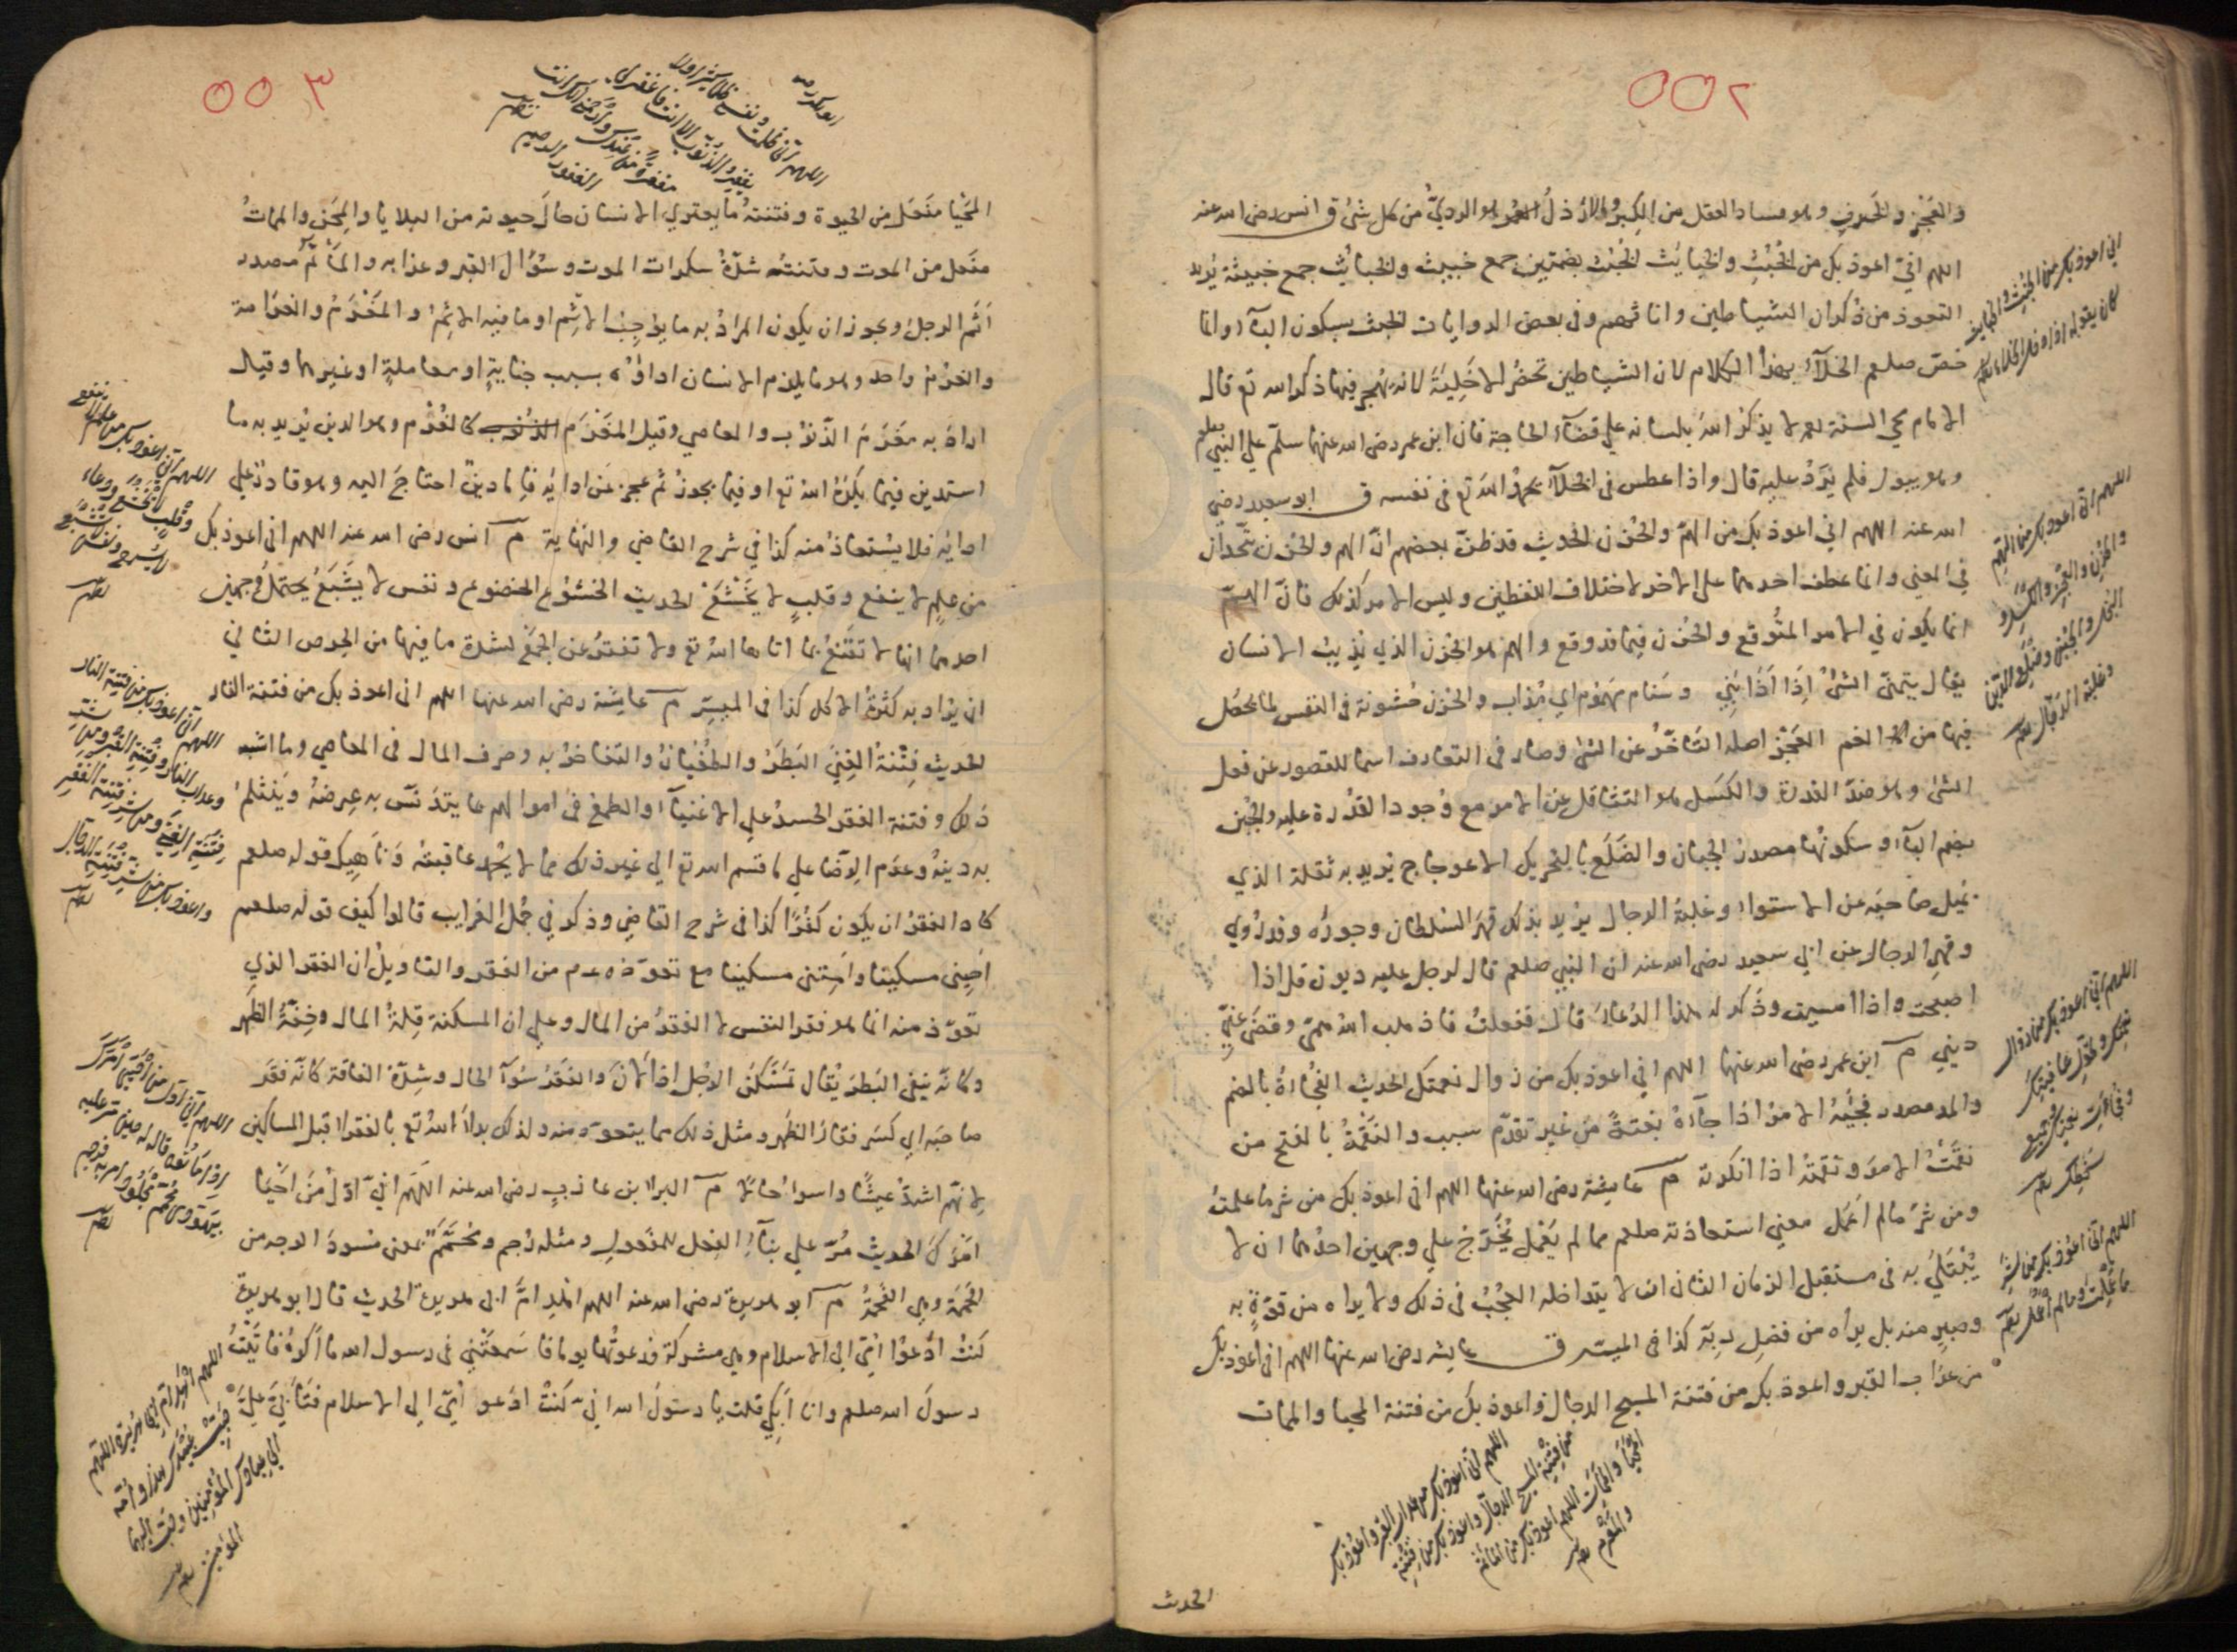 ٥٥٢
والعجز والخرف وهو فساد العقل من الكبر والارذل العمر هو الردي من كل شئ ق انس رضى الله عنه
اللهم اني اعوذ بك من الخبث والخبايث الخبث بضمتين جمع خبيث والخبائث جمع خبيثة يريد
التعوذ من ذكران الشياطين واناثهم وفى بعض الروايات الخبث بسكون الباء وانما
خص صلعم الخلاء بهذا الكلام لان الشياطين تحضر الاخلية لانه يهجر فيها ذكر الله تع قال
الامام محي السنة لا يذكر الله بلسانه علي قضاء الحاجة فان ابن عمر رضى الله عنهما سلم علي النبي صلعم
وهو يبول فلم يرد عليه قال واذا عطس فى الخلاء يحمد الله تع فى نفسه ق ابو سعيد رضي
الله عنه اللهم اني اعوذ بك من الهم والحزن الحديث قد ظن بعضهم ان الهم والحزن يتحدان
في المعني وانما عطف احدهما على الاخر لاختلاف اللفظين وليس الامر كذلك فان الهم
انما يكون في الامر المتوقع والحزن فيما قد وقع والهم هو الحزن الذي يذيب الانسان
يقال يهمني الشئ اذا اذابني وسنام مهموم اي مذاب والحزن خشونة فى النفس لما يحصل
فيها من الغم العجز اصله التأخر عن الشئ وصار في التعارف اسما للقصور عن فعل
الشئ وهو ضد القدرة والكسل هو التثاقل عن الامر مع وجود القدرة عليه والجبن
بضم الباء وسكونها مصدر الجبان والضلع بالتحريك الاعوجاج يريد به ثقلة الذي
يميل صاحبه عن الاستواء وغلبة الرجال يريد بذلك قهر السلطان وجوره وقد روي
وقهر الرجال عن ابي سعيد رضى الله عنه ان النبي صلعم قال لرجل عليه ديون قل اذا
اصبحت واذا امسيت وذكر له هذا الدعاء قال ففعلت فاذهب الله همي وقضى عني
ديني م ابن عمر رضى الله عنهما اللهم اني اعوذ بك من زوال نعمتك الحديث الفجاءة بالضم
والمد مصدر فجئه الامر اذا جاءه بغتة من غير تقدم سبب والنقمة بالفتح من
نقمت الامر ونقمته اذا انكرته م عايشة رضى الله عنها اللهم انى اعوذ بك من شر ما علمت
ومن شر مالم اعمل معني استعاذته صلعم مما لم يعمل يخرج علي وجهين احدهما ان لا
يبتلي به فى مستقبل الزمان الثان ان لا يتداخله العجب فى ذلك ولا يراه من قوة به
وصبر منه بل يراه من فضل ربه كذا فى الميسر ق عايشه رضى الله عنها اللهم انى اعوذ بك
من عذاب القبر واعوذ بك من فتنة المسيح الدجال واعوذ بك من فتنة المحيا والممات
انى اعوذ بك من الخبث والخبايث
كان يقوله اذا دخل الخلاء
اللهم انى اعوذ بك من الهم
والحزن والعجز والكسل و
البخل والجبن وضلع الدين
وغلبة الرجال
اللهم انى اعوذ بك من زوال
نعمتك وتحول عافيتك
وفجاءة نقمتك وجميع
سخطك
اللهم انى اعوذ بك من شر
ما عملت ومالم اعمل
اللهم انى اعوذ بك من عذاب القبر واعوذ بك
من فتنة المسيح الدجال واعوذ بك من فتنة
المحيا والممات اللهم اعوذ بك من المأثم
والمغرم
الحديث
٥٥٣
ابو بكر رضه
اللهم انى ظلمت نفسي ظلما كثيرا ولا
يغفر الذنوب الا انت فاغفر لى
مغفرة من عندك وارحمنى انك انت
الغفور الرحيم
المحيا مفعل من الحيوة وفتنته ما يعتري الانسان حال حيوته من البلايا والمحن والممات
مفعل من الموت وفتنته شدة سكرات الموت وسؤال القبر وعذابه والمأثم مصدر
اثم الرجل ويجوز ان يكون المراد به ما يوجب الاثم او ما فيه الاثم والمغرم والغرامة
والغرم واحد وهو ما يلزم الانسان اداؤه بسبب جناية او معاملة او غيرهما وقيل
اراد به مغرم الذنوب والمعاصي وقيل المغرم كالغرم وهو الدين يريد به ما
استدين فيما يكره الله تع او فيما يجوز ثم عجز عن ادائه فاما دين احتاج اليه وهو قادر علي
ادائه فلا يستعاذ منه كذا في شرح القاضي والنهاية م انس رضى الله عنه اللهم انى اعوذ بك
من علم لا ينفع وقلب لا يخشع الحديث الخشوع الخضوع ونفس لا يشبع يحتمل وجهين
احدهما انها لا تقنع بما اتاها الله تع ولا تفتر عن الجمع لشدة ما فيها من الحرص الثاني
ان يراد به كثرة الاكل كذا فى الميسر م عايشة رضى الله عنها اللهم انى اعوذ بك من فتنة النار
الحديث فتنة الغنى البطر والطغيان والتفاخر به وصرف المال فى المعاصي وما اشبه
ذلك وفتنة الفقر الحسد علي الاغنياء والطمع في اموالهم بما يتدنس به عرضه وينثلم
به دينه وعدم الرضا علي ما قسم الله تع الي غير ذلك مما لا يحمد عاقبته وناهيك قوله صلعم
كاد الفقر ان يكون كفرا كذا فى شرح القاضي وذكر في جمل الغرايب قالوا كيف قوله صلعم
احيني مسكينا وامتني مسكينا مع تعوذه عم من الفقر والتاويل ان الفقر الذي
تعوذ منه انما هو فقر النفس لا الفقد من المال وعلي ان المسكنة قلة المال وخفة الظهر
وكانه ينفى البطر يقال تمسكن الرجل اذا لان والفقر سوء الحال وشدة الفاقة كانه فقر
صاحبه اي كسر فقار الظهر ومثل ذلك مما يتعوذ منه ولذلك بدأ الله تع بالفقرا قبل المساكين
لانهم اشد عيشا واسوأ حالا م البراء بن عازب رضى الله عنه اللهم اني اول من احيا
امرك الحديث مر علي بناء الفعل للمفعول ومثله رجم ومحمم بمعنى مسود الوجه من
الحممة وهي الفحمة م ابو هريرة رضى الله عنه اللهم اهد ام ابى هريرة الحديث قال ابو هريرة
كنت ادعوا امي الى الاسلام وهي مشركة فدعوتها يوما فاسمعتني فى رسول الله ما اكره فاتيت
رسول الله صلعم وانا ابكي قلت يا رسول الله اني كنت ادعو امي الى الاسلام فتأبي علي
اللهم انى اعوذ بك من علم لا ينفع
وقلب لا يخشع ودعاء
لا يسمع ونفس لا تشبع
اللهم انى اعوذ بك من فتنة النار
وعذاب النار وفتنة القبر ومن شر
فتنة الغنى ومن شر فتنة الفقر
واعوذ بك من شر فتنة الدجال
اللهم انى اول من احيى امرك
اذ اماتوه قاله حين مر عليه
بيهودي محمم مجلود فامر به فرجم
اللهم اهد ام ابى هريرة اللهم
حبب عبيدك هذا وامه
الى عبادك المؤمنين وحبب اليهما
المؤمنين